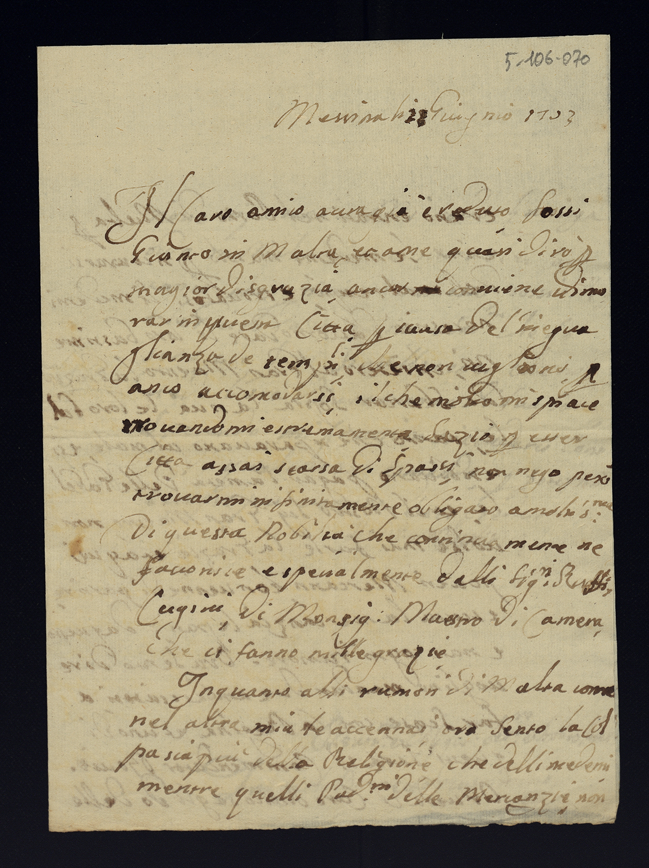 5-106-070
Messina li 22 Giugno 1703
Il Caro amico avera già creduto fossi
Gionto in Malta, et ame quasi dirò p
magior disgrazia ancor conviene dimo
rar in questa Città p causa del
de tempi che non vogliono p
anco accomodarsi, il che molto mi spiace
trovandomi estremamente p esser
Città assai scarsa di spassi non nego però
trovarmi infinitamente obligato a molti
di questa Nobiltà che continuamente ne
favorisce e specialmente dalli Sig.ri
Cugini di Monsig: Maestro di Camera,
che ci fanno mille grazie
Inquanto alli rumori di Malta come
nel altra mia te accennai ora sento la Col
pa sia più della Religione che delli medemi
mentre quelli Pad.ni delle Mercanzie non